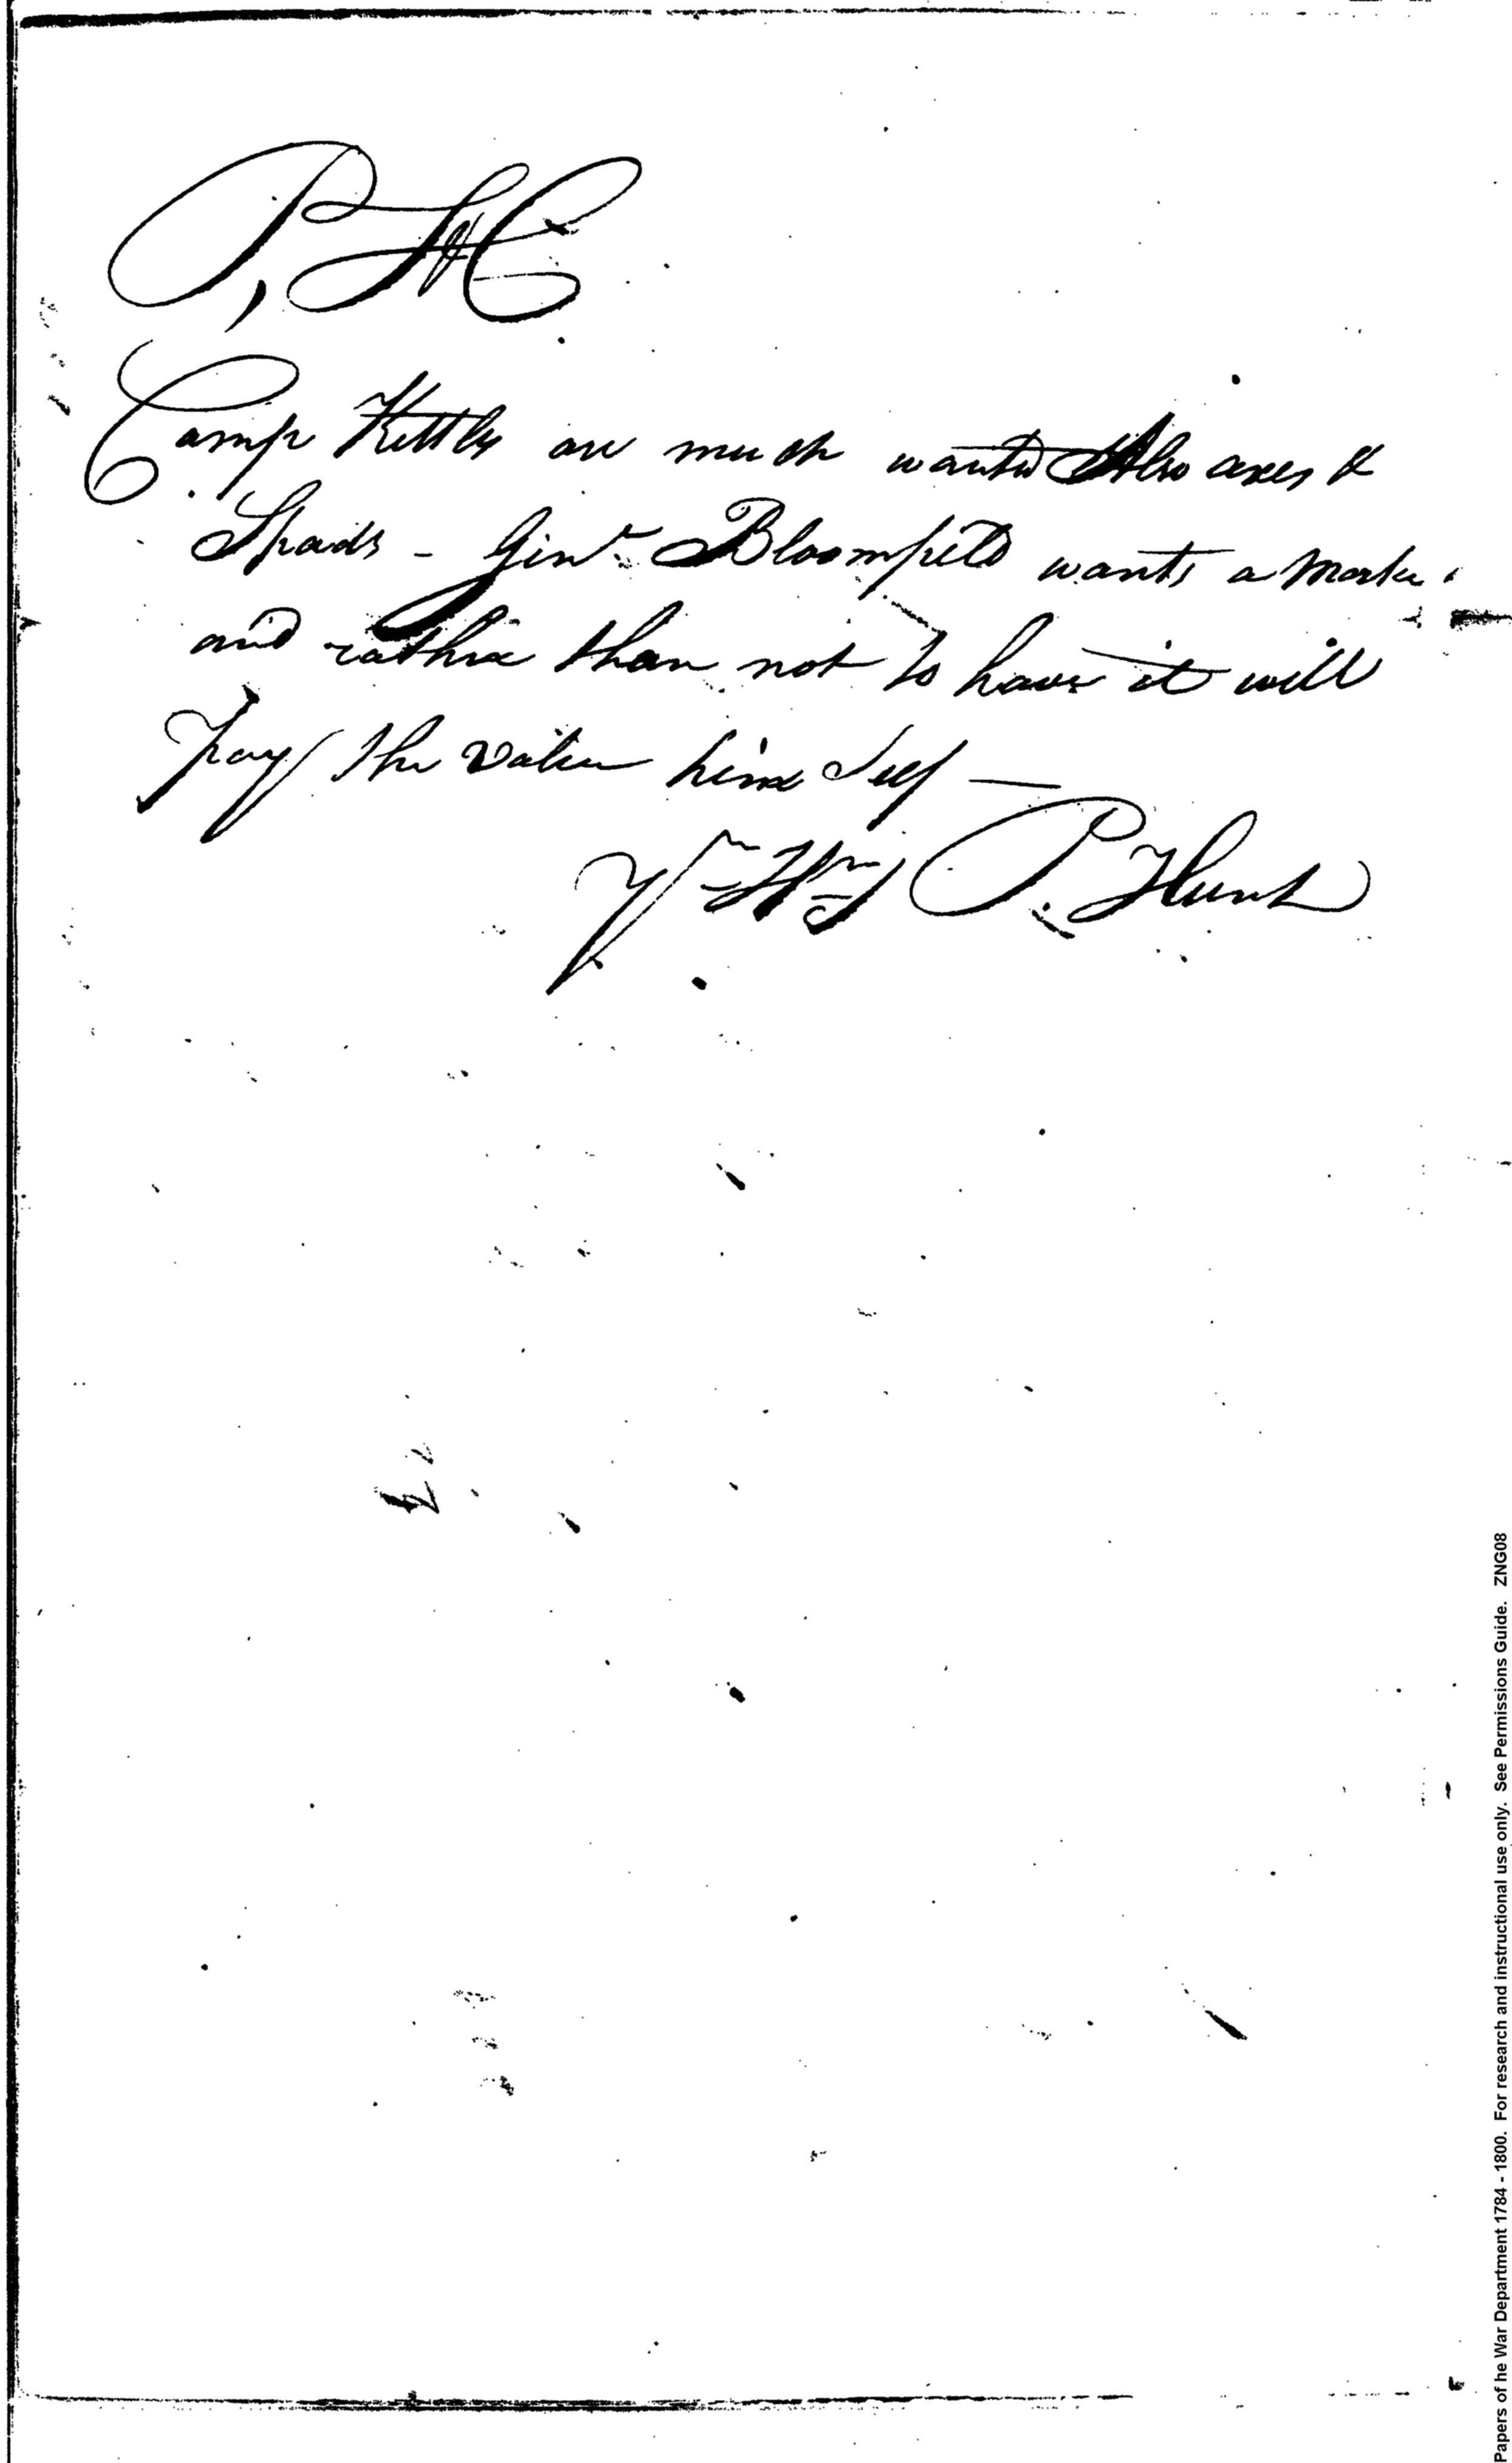 P, H
Camp Kettles are much wanted Also axes &
Spads - Genl Bloomfield wants a Marke
and rather than not to have it will
pay the value him Self —
P. Hunt
Papers of he War Department 1784 - 1800. For research and instructional use only. See Permissions Guide. ZNG08